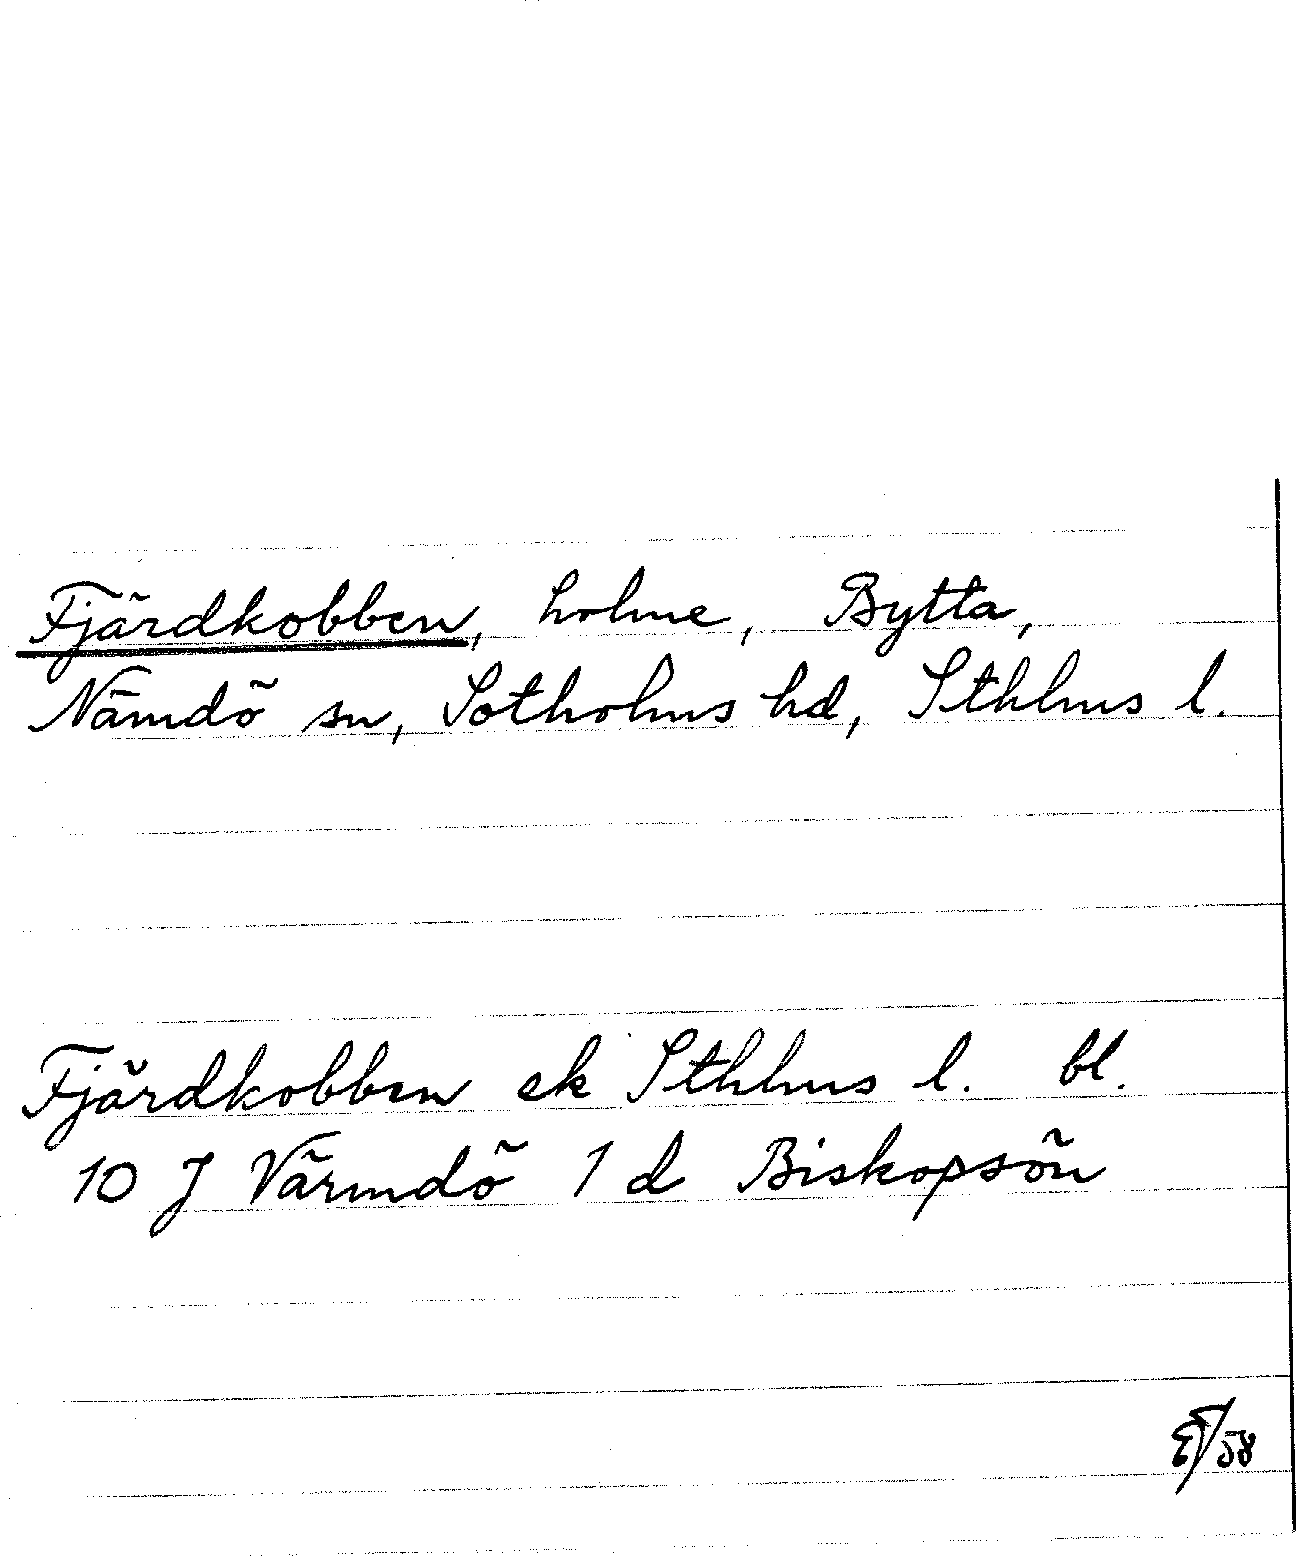 Fjärdkobben, holme, Bytta,
Nämdö sn, Sotholms hd, Sthlms l.
Fjärdkobben ek Sthlms l. bl.
10 J Värmdö 1 d Biskopsön
ET/58